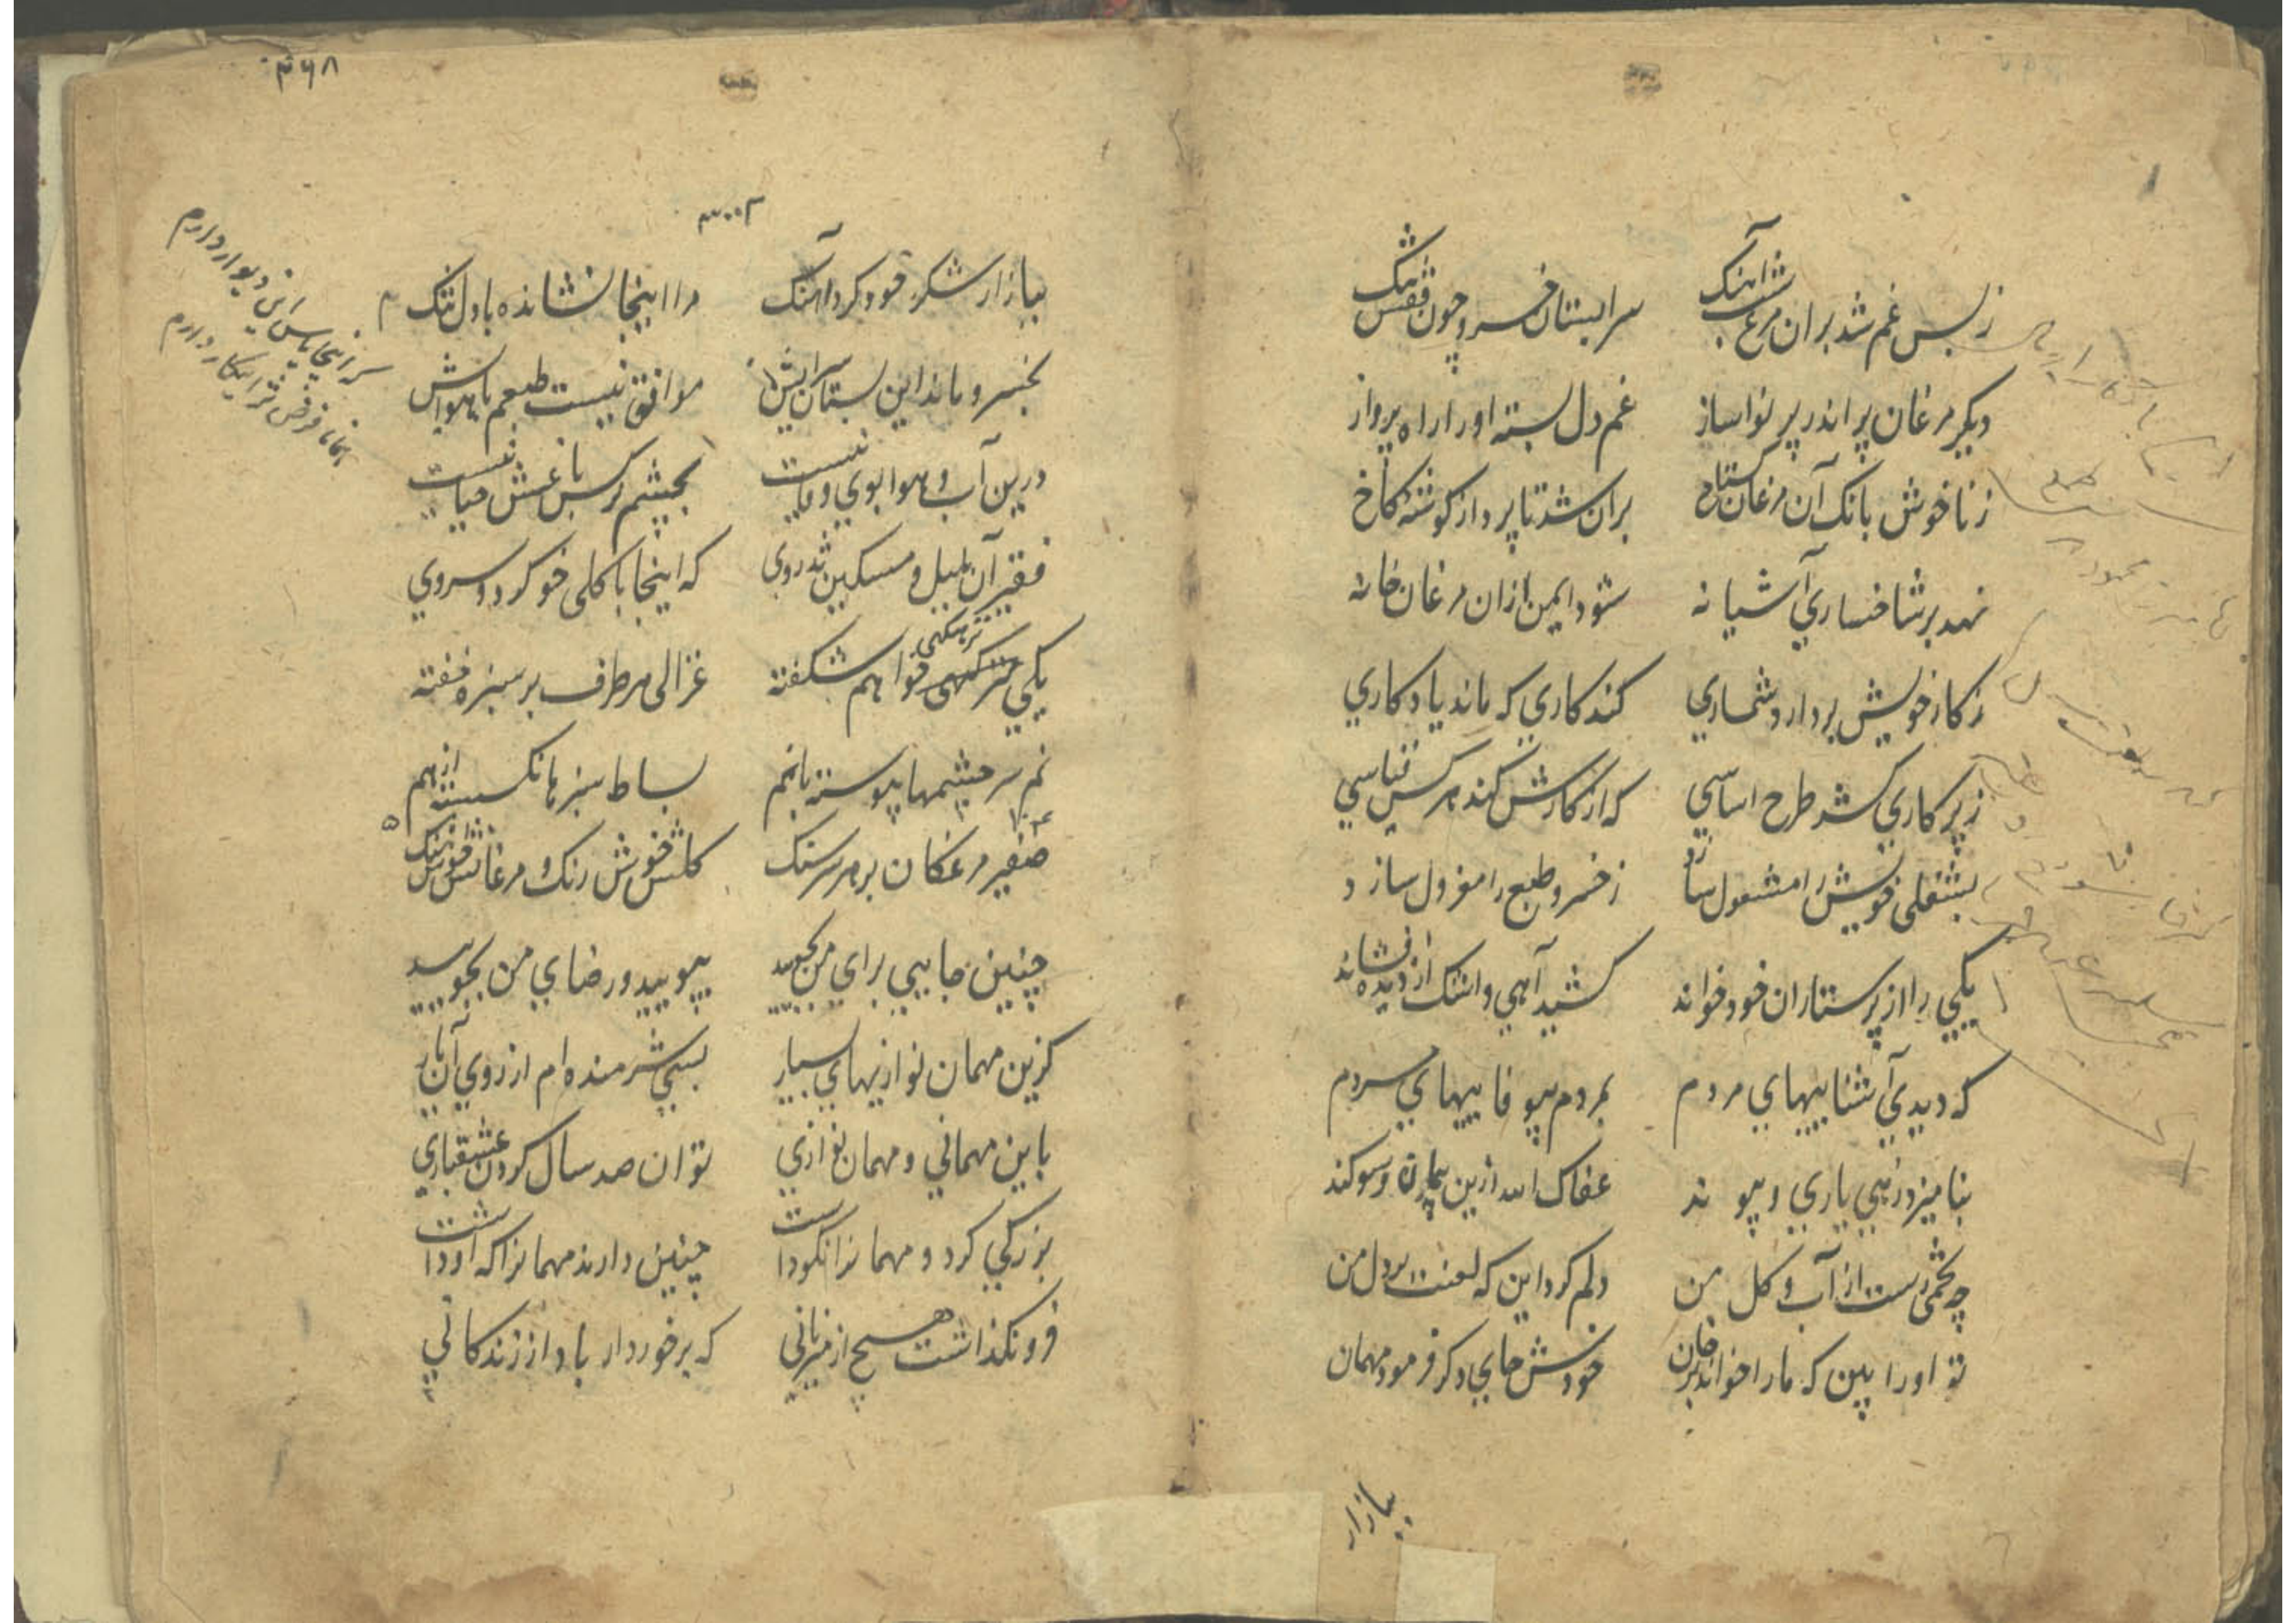 ز بس غم شد بران مرغ شباهنک سرابستان خسرو چون قفس تنک
دیکر مرغان پر اندر پر نوا ساز غم دل بسته او را راه پرواز
ز ناخوش بانک آن مرغان کستاخ بران شد تا پرد از کوشه کاخ
نهد بر شاخساری آشیانه شود ایمن ازان مرغان خانه
ز کار خویش بردارد شماری کند کاری که ماند یادکاری
ز پرکاری کشد طرح اساسی که از کارش کند هر کس قیاسی
بشغلی خویش را مشغول سازد ز خسرو طبع را معزول سازد
یکی را از پرستاران خود خواند کشید آهی و اشک از دیده افشاند
که دیدی آشناییهای مردم بمردم بیوفاییهای مردم
بنامیزد زهی یاری و پیوند عفاک الله ازین پیمان و سوکند
چه تخمی رست از آب و کل من دلم کرد این که لعنت بر دل من
تو او را بین که ما را خواند بر خوان خودش جای دکر فرمود مهمان
ببازار
۳۶۸
ببازار شکر خود کرد آهنک مرا اینجا نشانده با دل تنک
بخسرو ماند این بستان سرایش موافق نیست طبعم با هوایش
درین آب و هوا بوی وفا نیست بچشم نرکس باغش حیا نیست
فقیر آن بلبل و مسکین تذروی که اینجا با کلی خو کرد و سروی
یکی نزهتکهی خواهم شکفته نزهتکهی غزالی هر طرف بر سبزه خفته
نم سرچشمها پیوسته با نم بساط سبزها نکسسته از هم
صفیر مرغکان بر هر سر سنک کلش خوش رنک و مرغانش خوش آهنک
چنین جایی برای من بجویید بپویید و رضای من بجویید
کزین مهمان نوازیهای بسیار بسی شرمنده ام از روی آن یار
باین مهمانی و مهمان نوازی توان صد سال کردن عشقبازی
بزرکی کرد و مهمانرا نکو داشت چنین دارند مهمانرا که او داشت
فرو نکذاشت هیچ از میزبانی که برخوردار باد از زندکانی